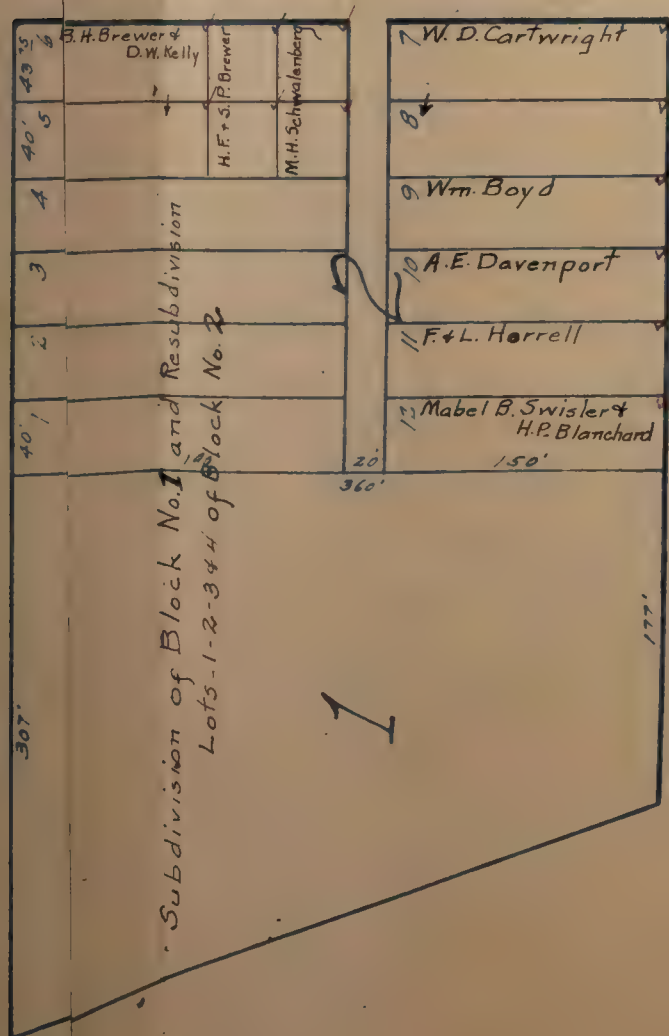 43 75
6
B. H. Brewer &
D. W. Kelly
H. F. & S. P. Brewer
M. H. Schwalenberg
7 W. D. Cartwright
40'
5
8
4
9 Wm. Boyd
3
10 A. E. Davenport
2
11 F. & L. Horrell
40'
1
12 Mabel B. Swisler &
H. P. Blanchard
20'
150'
360'
Subdivision of Block No. 1 and Resubdivision
Lots - 1 - 2 - 3 & 4 of Block No. 2
307'
1
177'